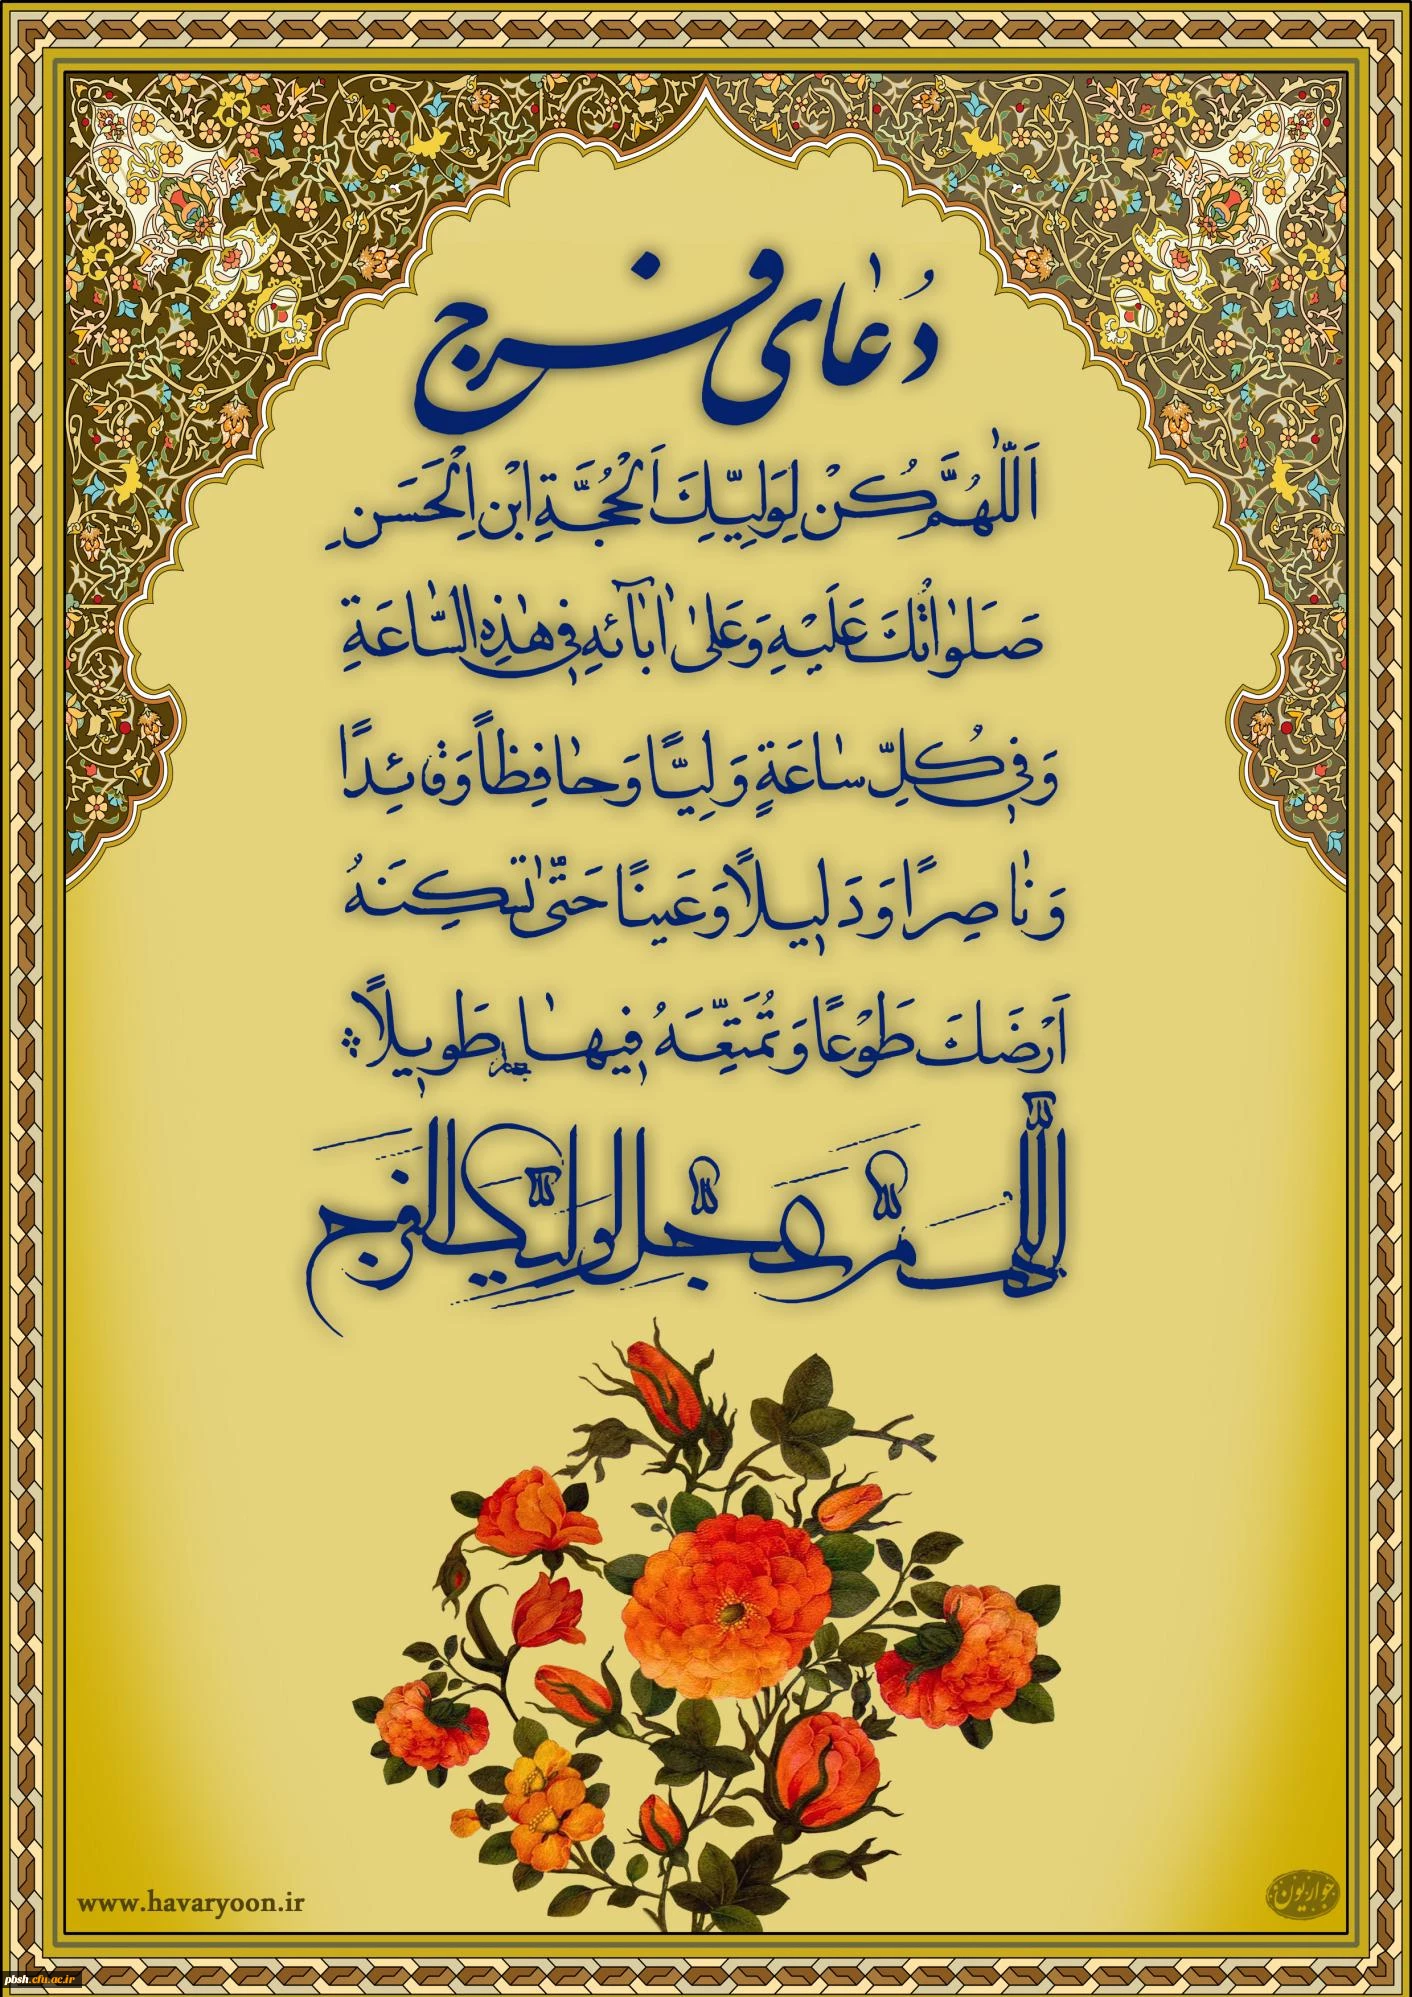 دُعٰای فرج
اَللّٰهُمَّ كُنْ لِوَلِيِّكَ اَلْحُجَّةِ ابْنِ الْحَسَنِ
صَلَوٰاتُكَ عَلَيْهِ وَعَلىٰ اٰبٰآئِهِ فِي هٰذِهِ السّٰاعَةِ
وَفِي كُلِّ سٰاعَةٍ وَلِيًّا وَحٰافِظاً وَقٰائِدًا
وَنٰاصِرًا وَدَلِيلاً وَعَيْنًا حَتّٰى تُسْكِنَهُ
اَرْضَكَ طَوْعًا وَتُمَتِّعَهُ فِيهٰا طَوِيلاً
اللّٰهم عجل لوليك الفرج
www.havaryoon.ir
حواریون
pbsh.cfu.ac.ir